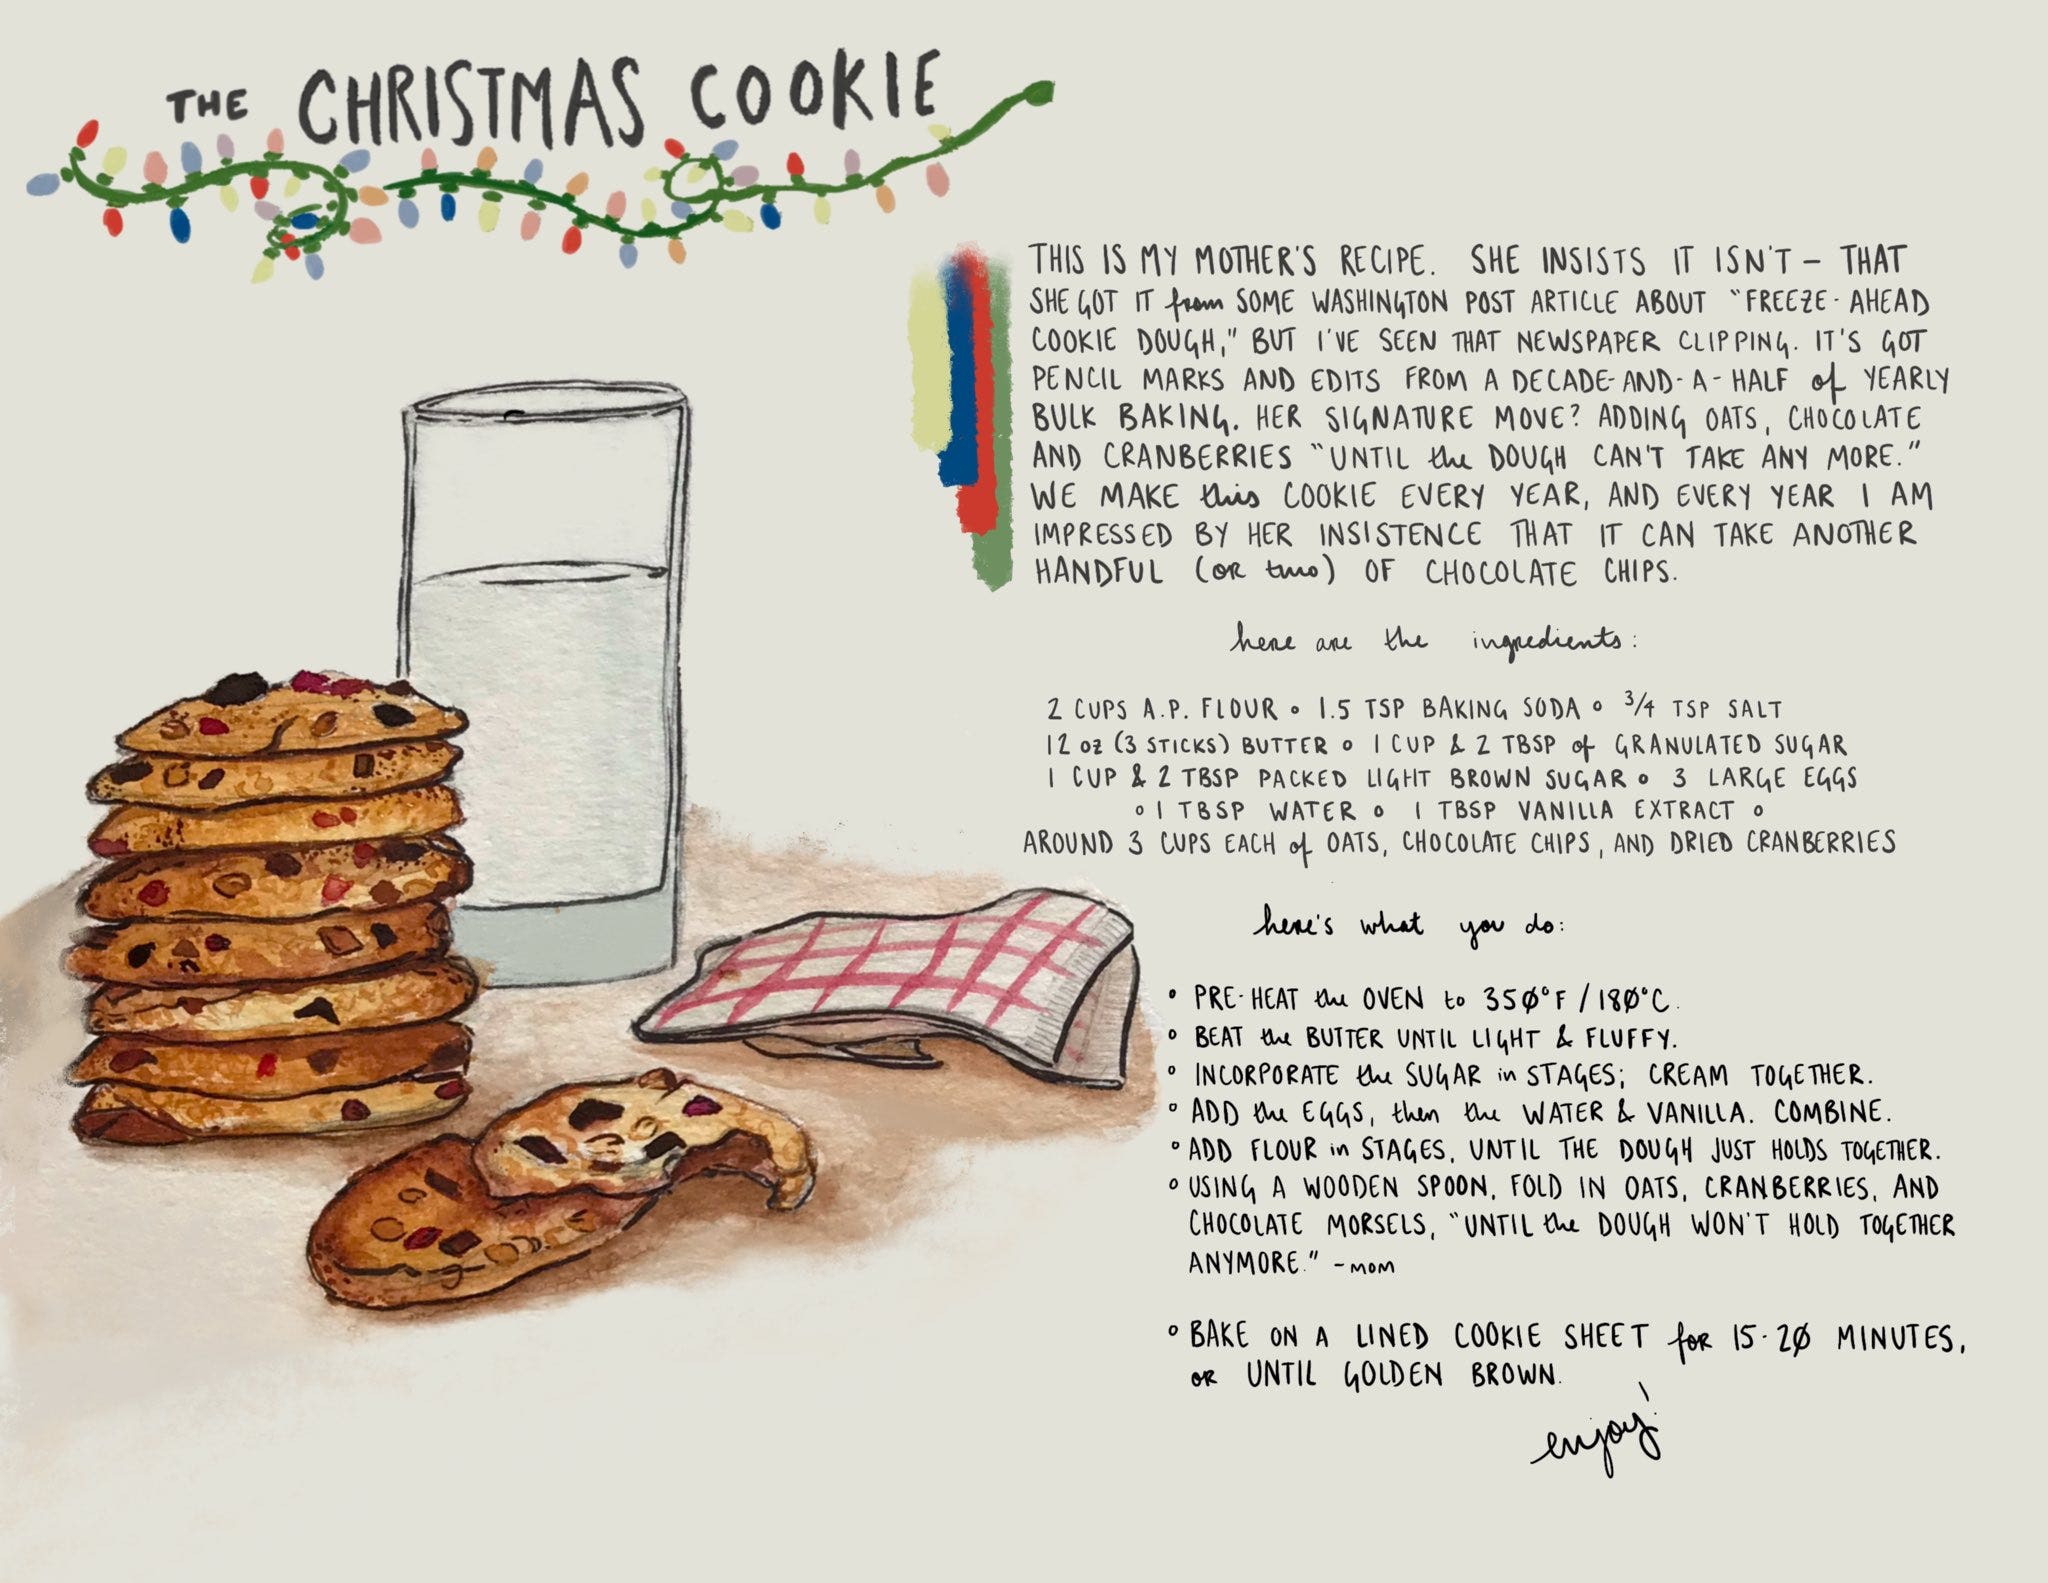 THE CHRISTMAS COOKIE
THIS IS MY MOTHER'S RECIPE. SHE INSISTS IT ISN'T - THAT
SHE GOT IT from SOME WASHINGTON POST ARTICLE ABOUT "FREEZE-AHEAD
COOKIE DOUGH," BUT I'VE SEEN THAT NEWSPAPER CLIPPING. IT'S GOT
PENCIL MARKS AND EDITS FROM A DECADE-AND-A-HALF of YEARLY
BULK BAKING. HER SIGNATURE MOVE? ADDING OATS, CHOCOLATE
AND CRANBERRIES "UNTIL the DOUGH CAN'T TAKE ANY MORE."
WE MAKE this COOKIE EVERY YEAR, AND EVERY YEAR I AM
IMPRESSED BY HER INSISTENCE THAT IT CAN TAKE ANOTHER
HANDFUL (OR two) OF CHOCOLATE CHIPS.
here are the ingredients:
2 CUPS A.P. FLOUR • 1.5 TSP BAKING SODA • 3/4 TSP SALT
12 oz (3 STICKS) BUTTER • 1 CUP & 2 TBSP of GRANULATED SUGAR
1 CUP & 2 TBSP PACKED LIGHT BROWN SUGAR • 3 LARGE EGGS
• 1 TBSP WATER • 1 TBSP VANILLA EXTRACT •
AROUND 3 CUPS EACH of OATS, CHOCOLATE CHIPS, AND DRIED CRANBERRIES
here's what you do:
• PRE-HEAT the OVEN to 350°F / 180°C.
• BEAT the BUTTER UNTIL LIGHT & FLUFFY.
• INCORPORATE the SUGAR in STAGES; CREAM TOGETHER.
• ADD the EGGS, then the WATER & VANILLA. COMBINE.
• ADD FLOUR in STAGES, UNTIL THE DOUGH JUST HOLDS TOGETHER.
• USING A WOODEN SPOON, FOLD IN OATS, CRANBERRIES, AND
CHOCOLATE MORSELS, "UNTIL the DOUGH WON'T HOLD TOGETHER
ANYMORE." - MOM
• BAKE ON A LINED COOKIE SHEET for 15-20 MINUTES,
OR UNTIL GOLDEN BROWN.
enjoy!